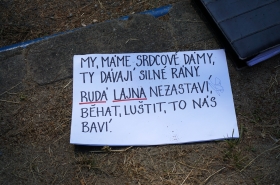 MY, MÁME SRDCOVÉ DÁMY,
TY DÁVAJÍ SILNÉ RÁNY.
RUDÁ LAJNA NEZASTAVÍ,
BĚHAT, LUŠTIT, TO NÁS
BAVÍ.